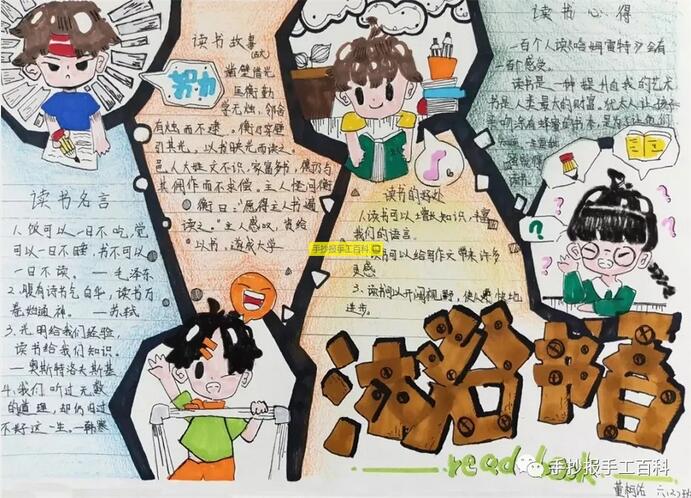 读书名言
1、饭可以一日不吃,觉
可以一日不睡,书不可以
一日不读。—毛泽东
2、腹有诗书气自华,读书万
卷始通神。—苏轼
3、光明给我们经验,
读书给我们知识。
—奥斯特洛夫斯基
4、我们听过无数
的道理,却仍旧过
不好这一生。—韩寒
努力
读书故事
凿壁借光
匡衡勤
学无烛,邻舍
有烛而不逮。衡乃穿壁
引其光,以书映光而读之。
邑人大姓文不识,家富多书,衡乃与
其佣作而不求偿。主人怪问衡
衡曰:“愿得主人书遍
读之。”主人感叹,资给
以书,遂成大学
读书的好处
1、读书可以增长知识,丰富
我们的语言。
2、读书可以给写作文带来许多
灵感
3、读书可以开阔视野,使人愉快地
进步。
读书心得
一百个人读《哈姆雷特》会有
一百个感受。
读书是一种提升自我的艺术
书是人类最大的财富。犹太人让孩子
沐浴书香
read book
手抄报手工百科
手抄报手工百科
六(2)班